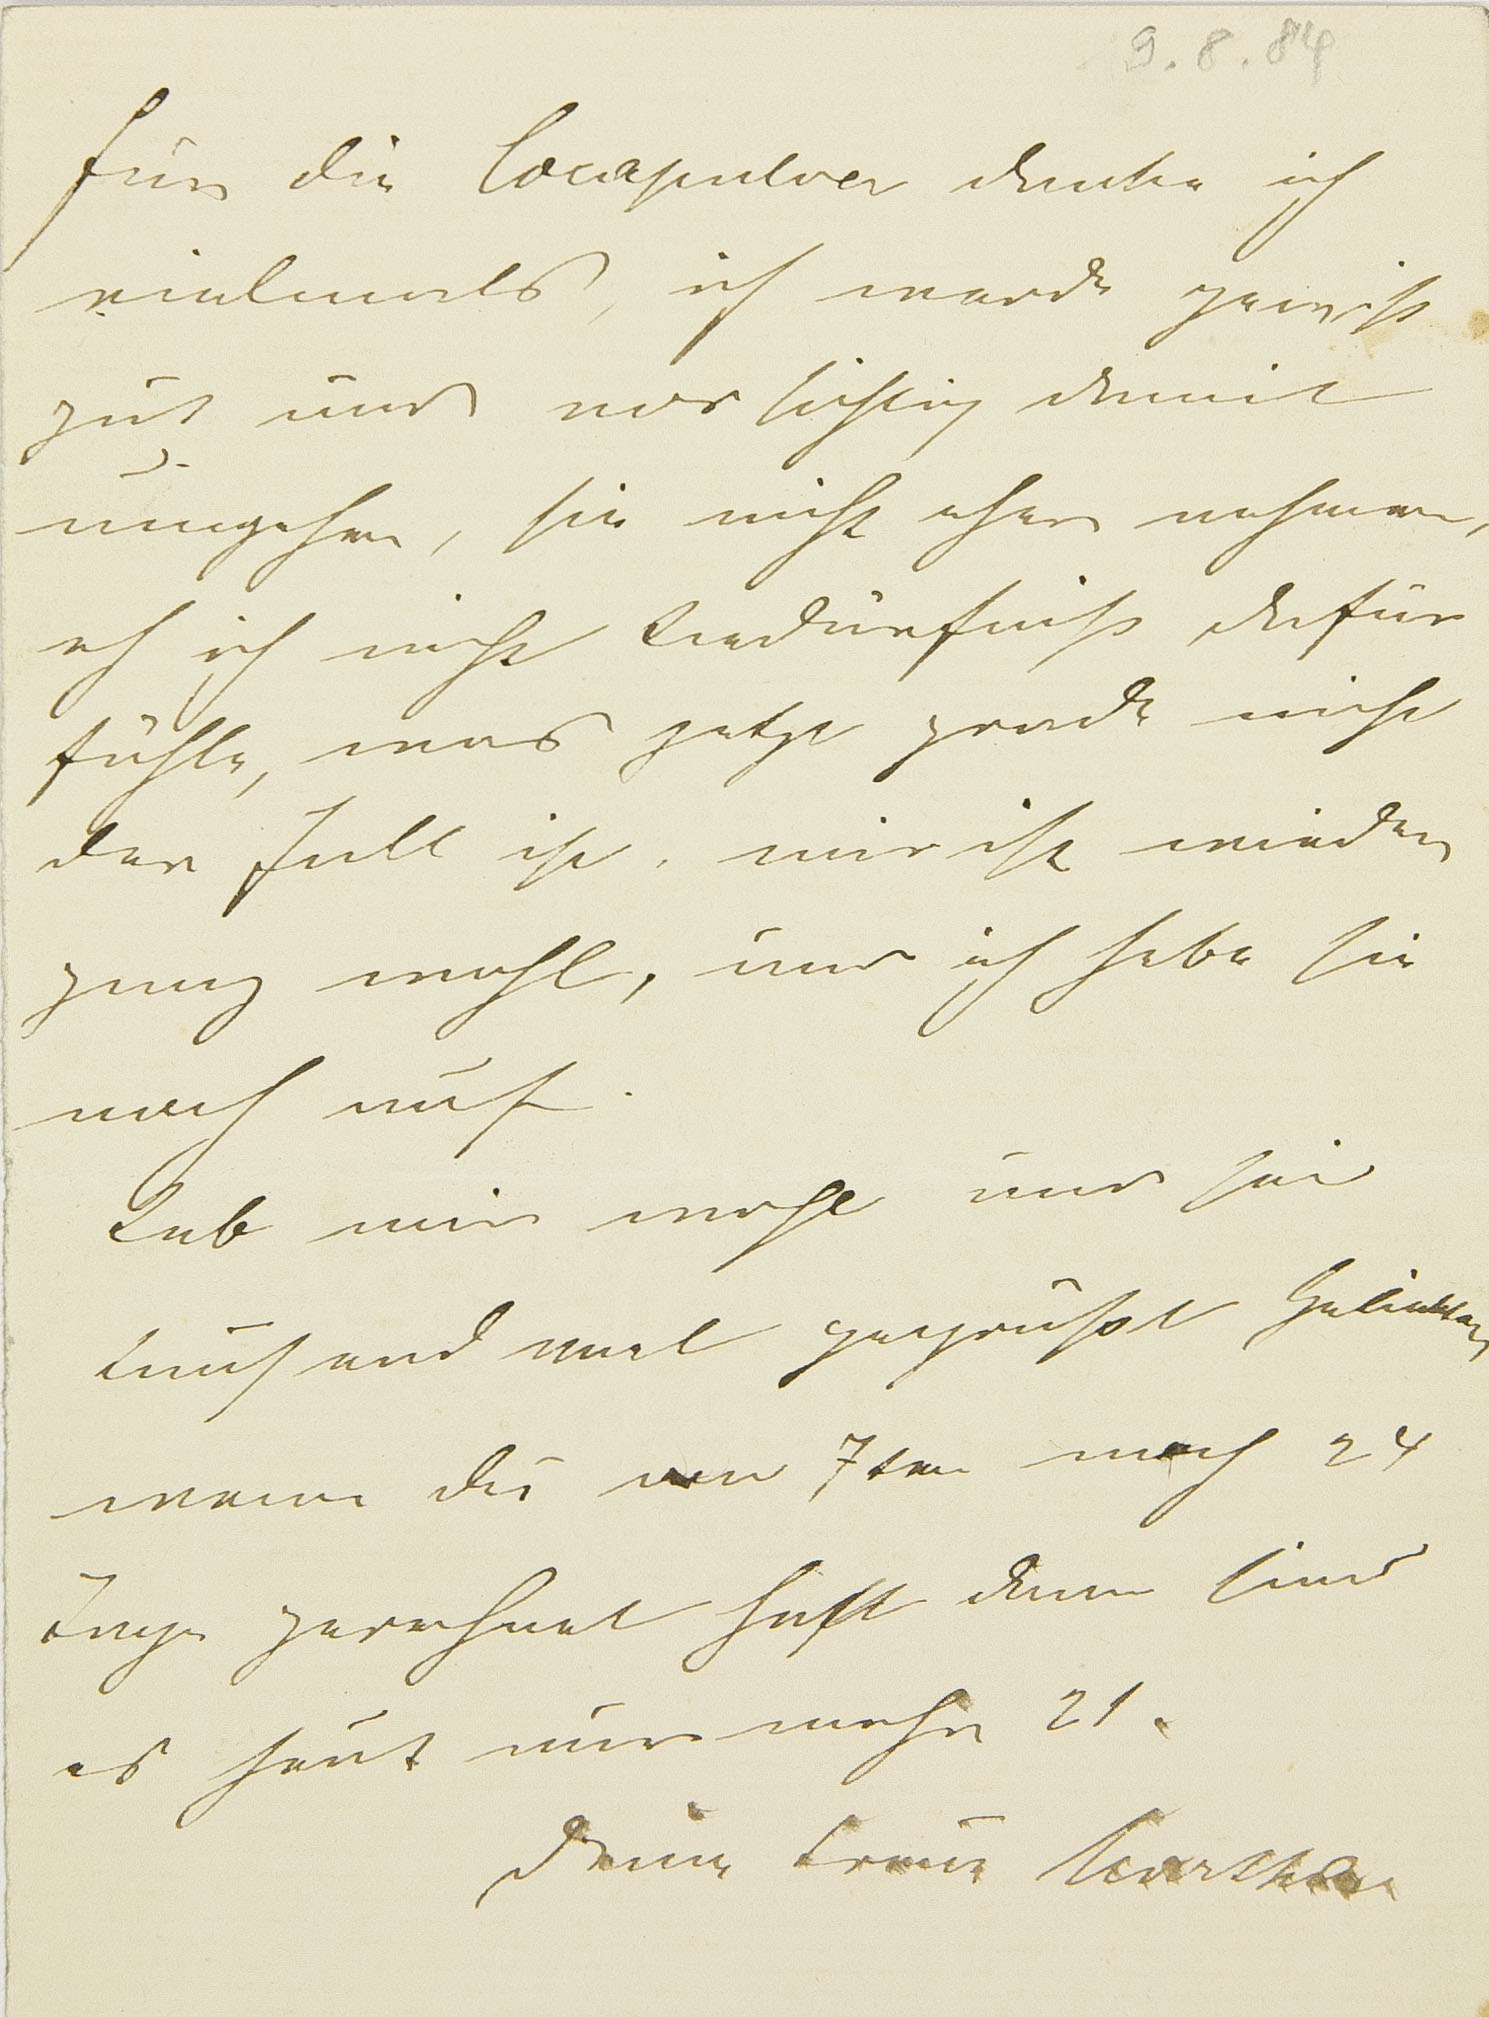 9.8.84
für die Cocapulver danke ich
vielmals, ich werde gewiß
gut und vorsichtig damit
umgehen, sie nicht eher nehmen,
eh ich nicht Bedürfniß dafür
fühle, was jetzt grade nicht
der Fall ist, mir ist wieder
ganz wohl, und ich hebe sie
noch auf.
Leb mir wohl und sei
tausend mal gegrüßt Geliebter,
wenn du am 7ten noch 24
Tage gerechnet hast dann sind
es heut nur mehr 21.
Deine treue Martha